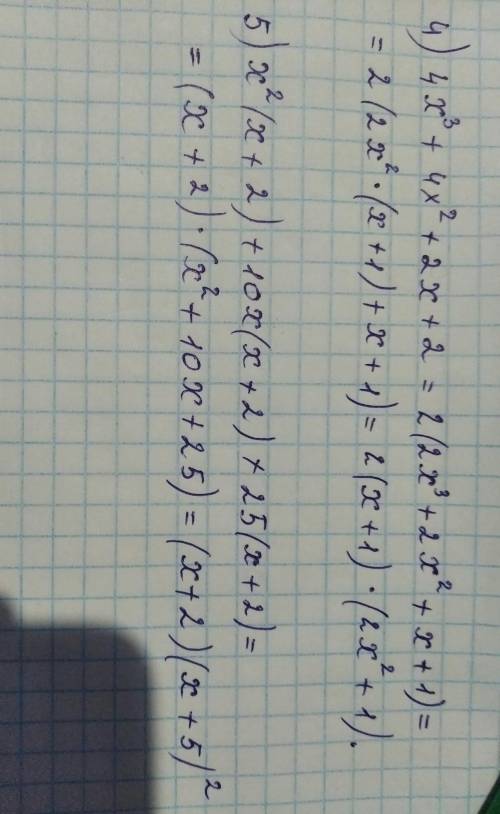 4) 4x³ + 4x² + 2x + 2 = 2(2x³ + 2x² + x + 1) =
= 2(2x² · (x + 1) + x + 1) = 2(x + 1) · (2x² + 1).
5) x²(x + 2) + 10x(x + 2) + 25(x + 2) =
= (x + 2) · (x² + 10x + 25) = (x + 2)(x + 5)²